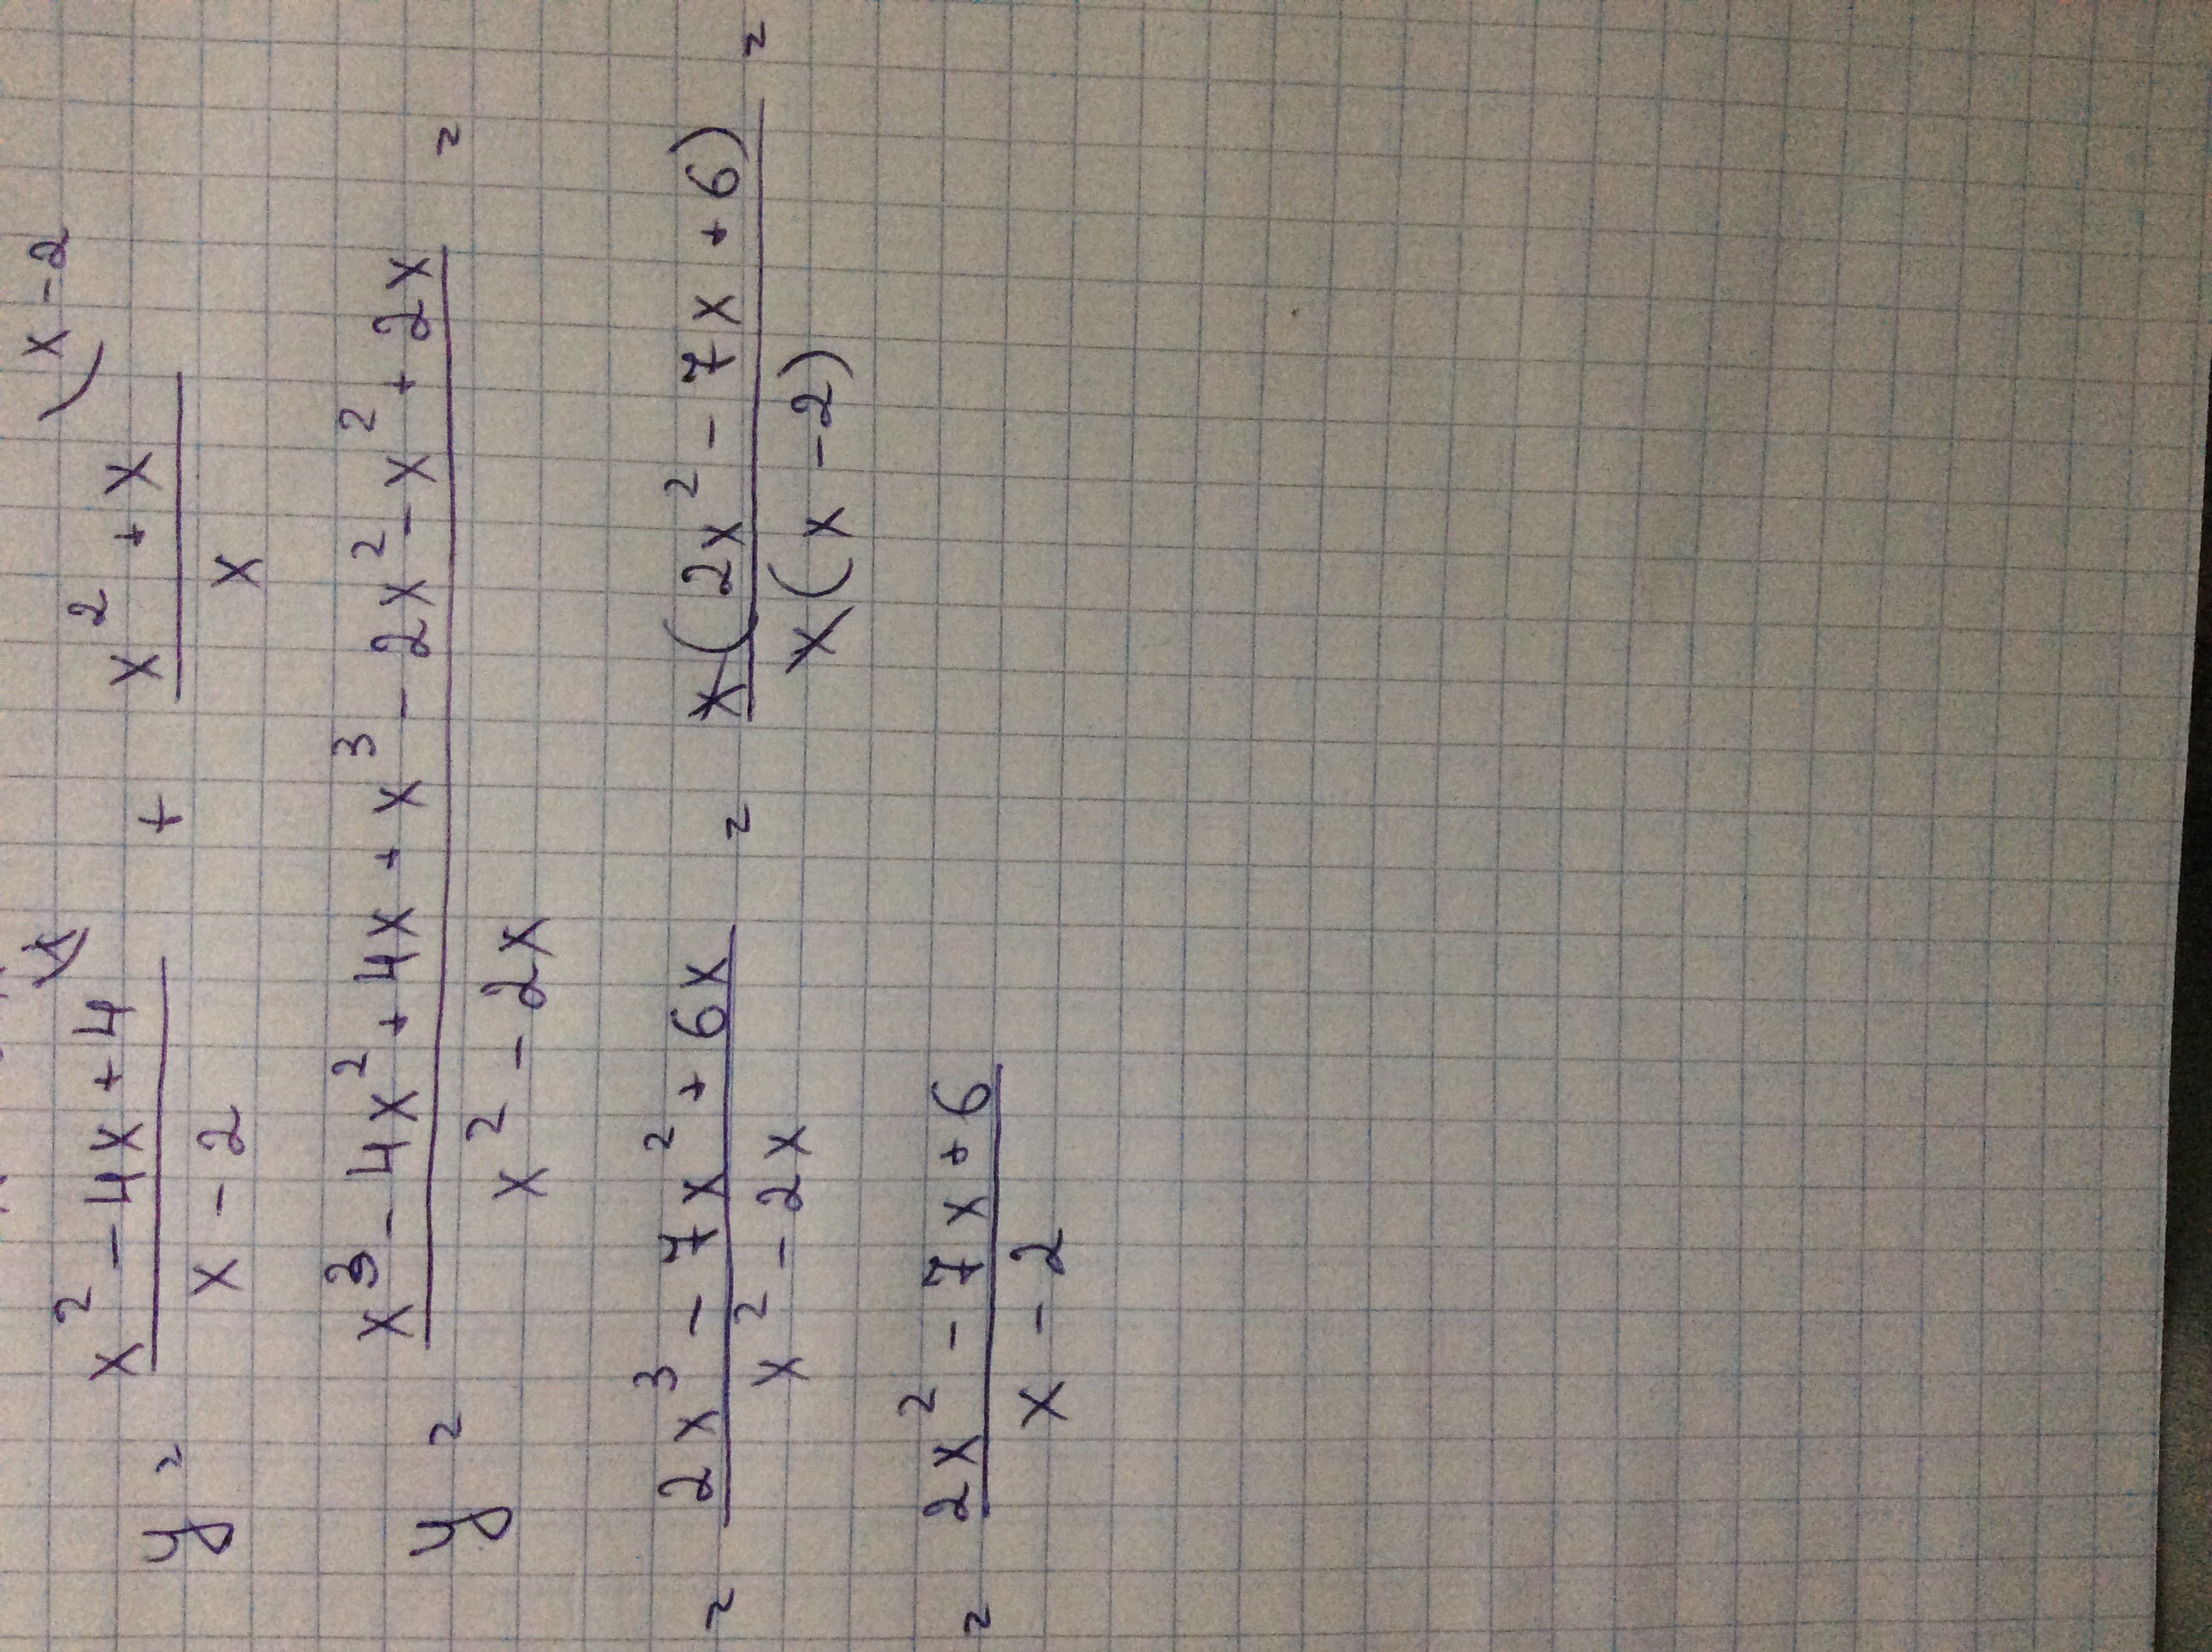 y = \frac{x^2 - 4x + 4}{x - 2}^{(x} + \frac{x^2 + x}{x}^{(x - 2}
y = \frac{x^3 - 4x^2 + 4x + x^3 - 2x^2 - x^2 + 2x}{x^2 - 2x} =
= \frac{2x^3 - 7x^2 + 6x}{x^2 - 2x} = \frac{x(2x^2 - 7x + 6)}{x(x - 2)} =
= \frac{2x^2 - 7x + 6}{x - 2}